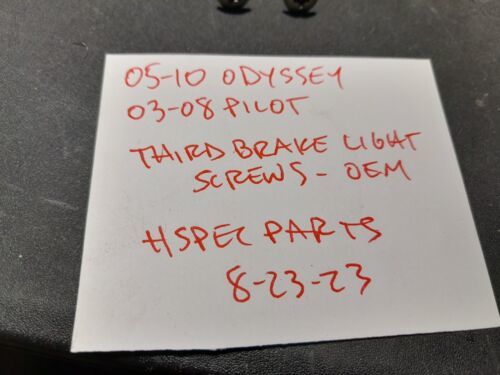 05-10 ODYSSEY
03-08 PILOT
THIRD BRAKE LIGHT
SCREWS - OEM
HSPEC PARTS
8-23-23